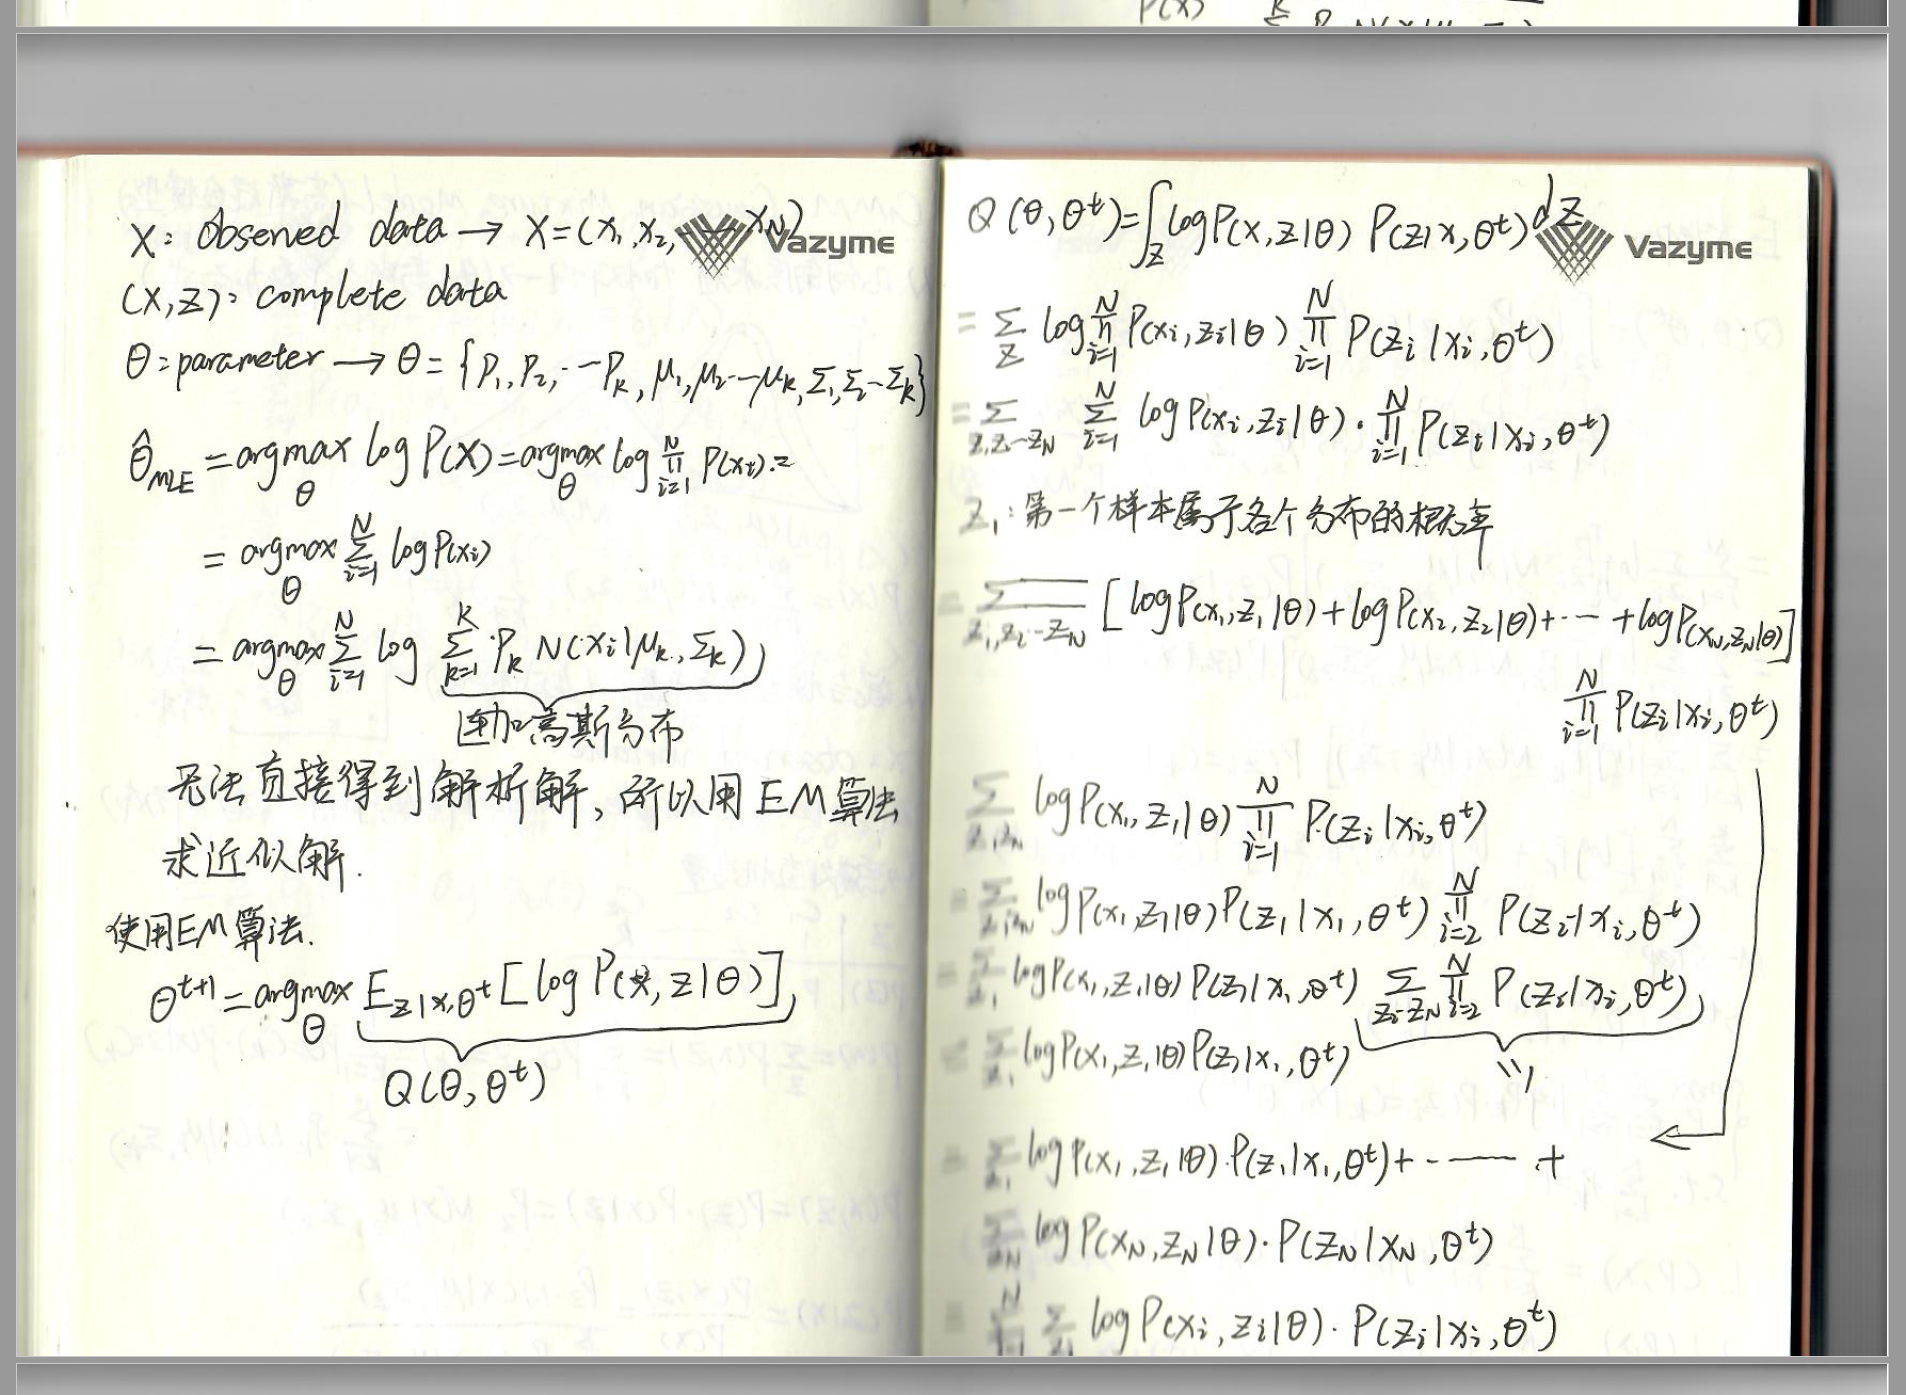 X: Observed data → X=(x₁,x₂,……xN)
Vazyme
(X,Z): complete data
θ: parameter → θ={P₁,P₂,…Pk,μ₁,μ₂…μk,Σ₁,Σ₂…Σk}
θ̂MLE = argmax_θ log P(X) = argmax_θ log ∏_{i=1}^{N} P(xi).=
= argmax_θ ∑_{i=1}^{N} log P(xi)
= argmax_θ ∑_{i=1}^{N} log ∑_{k=1}^{K} Pk N(xi|μk,Σk)
连加高斯分布
无法直接得到解析解,所以用EM算法
求近似解.
使用EM算法.
θ^{t+1} = argmax_θ E_{z|x,θ^t}[log P(x,z|θ)]
Q(θ,θ^t)
Q(θ,θ^t)=∫_Z log P(x,z|θ) P(z|x,θ^t) dz
Vazyme
= ∑_Z log ∏_{i=1}^{N} P(xi,zi|θ) ∏_{i=1}^{N} P(zi|xi,θ^t)
= ∑_{z₁z₂…zN} ∑_{i=1}^{N} log P(xi,zi|θ)·∏_{i=1}^{N} P(zi|xi,θ^t)
z₁:第一个样本属于各个分布的概率
= ∑_{z₁,z₂…zN} [log P(x₁,z₁|θ)+log P(x₂,z₂|θ)+…+log P(xN,zN|θ)]
∏_{i=1}^{N} P(zi|xi,θ^t)
∑_{z₁zN} log P(x₁,z₁|θ) ∏_{i=1}^{N} P(zi|xi,θ^t)
= ∑_{z₁zN} log P(x₁,z₁|θ) P(z₁|x₁,θ^t) ∏_{i=2}^{N} P(zi|xi,θ^t)
= ∑_{z₁} log P(x₁,z₁|θ) P(z₁|x₁,θ^t) ∑_{z₂…zN} ∏_{i=2}^{N} P(zi|xi,θ^t)
= ∑_{z₁} log P(x₁,z₁|θ) P(z₁|x₁,θ^t)
=1
= ∑_{z₁} log P(x₁,z₁|θ)·P(z₁|x₁,θ^t)+……+
∑_{zN} log P(xN,zN|θ)·P(zN|xN,θ^t)
= ∑_{i=1}^{N} ∑_{zi} log P(xi,zi|θ)·P(zi|xi,θ^t)